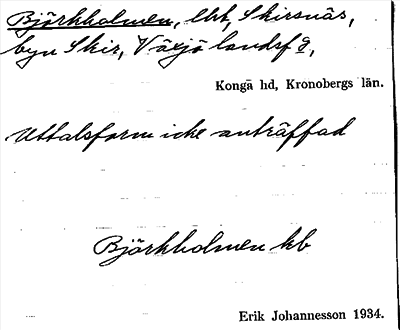 Björkholmen, lht, Skirsnäs,
byn Skir, Växjö landsfg,
Konga hd, Kronobergs län.
Uttalsform icke anträffad
Björkholmen kb
Erik Johannesson 1934.